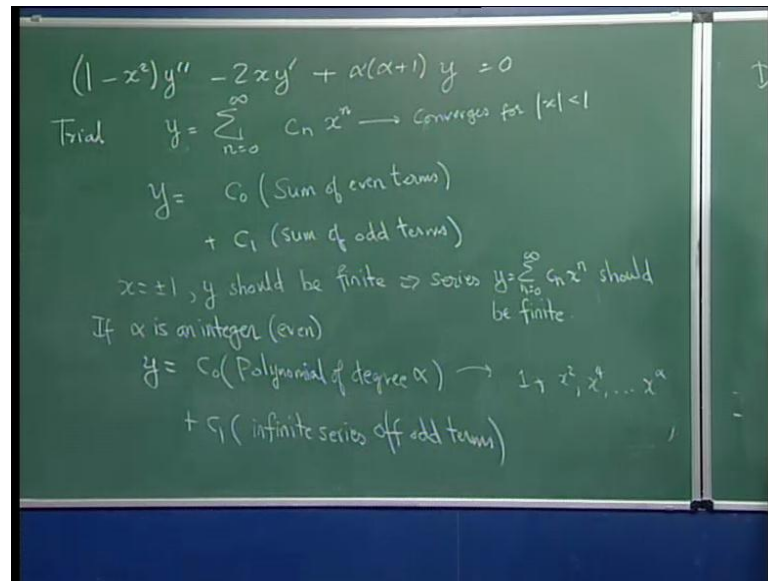 (1 - x²) y'' - 2xy' + α(α+1) y = 0
Trial y = ∑_{n=0}^{∞} cₙ xⁿ ⟶ Converges for |x| < 1
y = C₀ (Sum of even terms)
+ C₁ (sum of odd terms)
x = ±1, y should be finite ⇒ series y = ∑_{n=0}^{∞} cₙ xⁿ should
be finite.
If α is an integer (even)
y = C₀ (Polynomial of degree α) → 1, x², x⁴, ... x^α
+ C₁ (infinite series off odd terms)